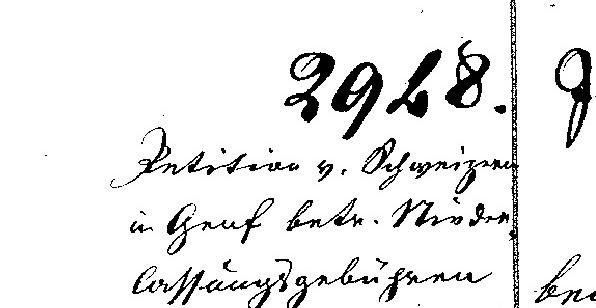 2968.
Petition v. Schweizern
in Genf betr. Nieder-
lassungsgebühren